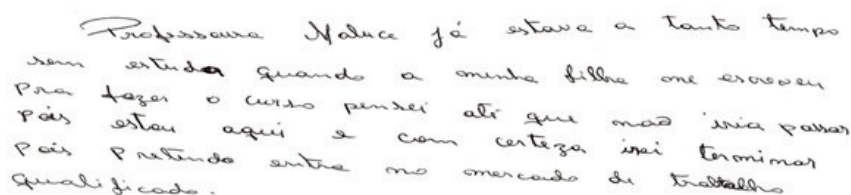 Professoura Naluce já estava a tanto tempo
sem estuda quando a minha filha me escreveu
pra fazer o curso pensei até que não iria passar
pois estou aqui e com certeza irei terminar
pois pretendo entra no mercado de trabalho
qualificado.